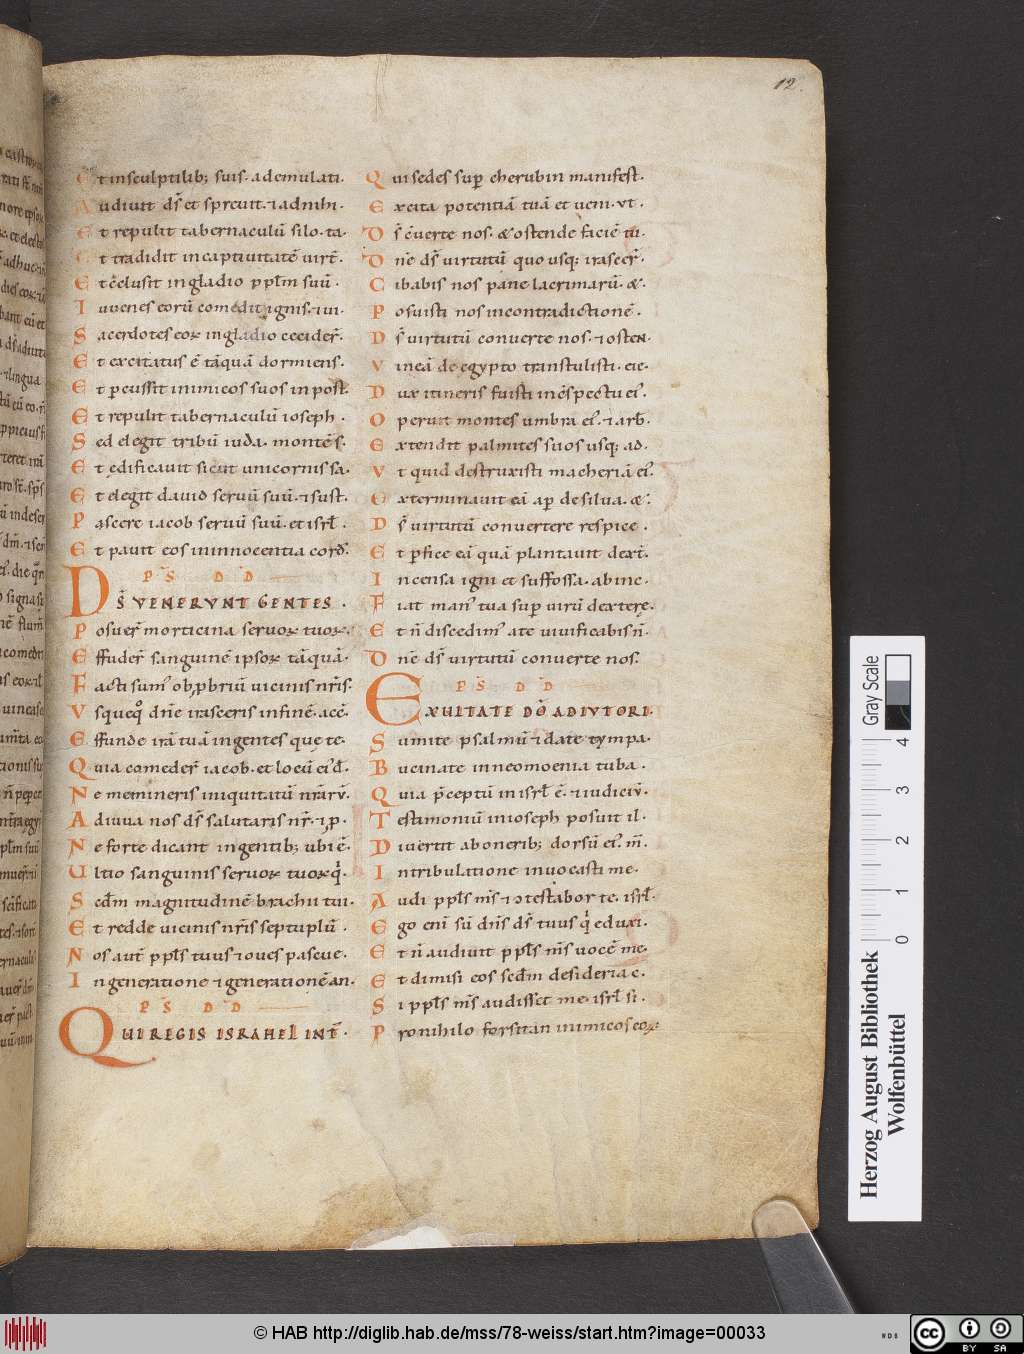 12
Et insculptilib; suis· ademulati·
Audiuit d̄s et spreuit· ⁊ adnihi·
Et repulit tabernaculū silo· ta·
Et tradidit incaptiuitatē uirt̄·
Et c̄clusit ingladio pplm̄ suū·
Iuuenes eorū comedit ignis· ⁊ ui·
Sacerdotes eoꝝ ingladio cecider̄·
Et excitatus ē tāquā dormiens·
Et ꝑcussit inimicos suos in post̄·
Et repulit tabernaculū ioseph·
Sed elegit tribū iuda· montē s̄·
Et edificauit sicut unicornis sa·
Et elegit dauid seruū suū· ⁊ sust·
Pascere iacob seruū suū· et isrl̄·
Et pauit eos ininnocentia cord̄·
PS̄ D̄D
DS̄ VENERVNT GENTES·
Posuer̄ morticina seruoꝝ tuoꝝ·
Effuder̄ sanguinē ipsoꝝ tāquā·
Facti sum᾽ obꝓbriū uicinis nr̄is·
Vsquequo dn̄e irasceris infinē· acc̄·
Effunde irā tuā ingentes que te·
Quia comeder̄ iacob· et locū ei᾽ d̄·
Ne memineris iniquitatū nr̄arv̄·
Adiuua nos d̄s salutaris nr̄· ⁊ ꝓ·
Ne forte dicant ingentib; ubi ē·
Ultio sanguinis seruoꝝ tuoꝝ q̇·
Scdm̄ magnitudinē brachii tui·
Et redde uicinis nr̄is septuplū·
Nos aut̄ ppl̄s tuus ⁊ oues pascue·
Ingeneratione ⁊ generationē an·
PS̄ D̄D
QUI REGIS ISRAHEL INT̄·
Qui sedes suꝑ cherubin manifest·
Excita potentiā tuā et ueni· vt·
D̄s c̄uerte nos· & ostende faciē tu·
Dn̄e d̄s uirtutū quo usq; irascer̄·
Cibabis nos pane lacrimarū· &·
Posuisti nos incontradictionē·
D̄s uirtutū conuerte nos· ⁊ osten·
Vineā de egypto transtulisti· eie·
Dux itineris fuisti inc̄spectu ei᾽·
Operuit montes umbra ei᾽· ⁊ arb̄·
Extendit palmites suos usq; ad·
Vt quid destruxisti maceriā ei᾽·
Exterminauit eā aper desilua· &·
D̄s uirtutū conuertere respice·
Et ꝑfice eā quā plantauit dext̄·
Incensa igni et suffossa· abinc·
Fiat man᾽ tua suꝑ uirū dextere·
Et n̄ discedim᾽ ate uiuificabis n̄·
Dn̄e d̄s uirtutū conuerte nos·
PS̄ D̄D
EXULTATE DŌ ADIVTORI·
Sumite psalmū ⁊ date tympa·
Bucinate inneomenia tuba·
Quia p̄ceptū inisrl̄ ē· ⁊ iudiciv̄·
Testimoniū inioseph posuit il·
Diuertit abonerib; dorsū ei᾽· m̄·
Intribulatione inuocasti me·
Audi ppl̄s m̄s ⁊ ɔtestabor te· isrl̄·
Ego eni sū dn̄s d̄s tuus q̇ eduxi·
Et n̄ audiuit ppl̄s m̄s uocē me·
Et dimisi eos scdm̄ desideria c·
Si ppl̄s m̄s audisset me· isrl̄ si·
Pronihilo forsitan inimicos eoꝝ
Herzog August Bibliothek
Wolfenbüttel
0 1 2 3 4
Gray Scale
© HAB http://diglib.hab.de/mss/78-weiss/start.htm?image=00033
cc BY SA